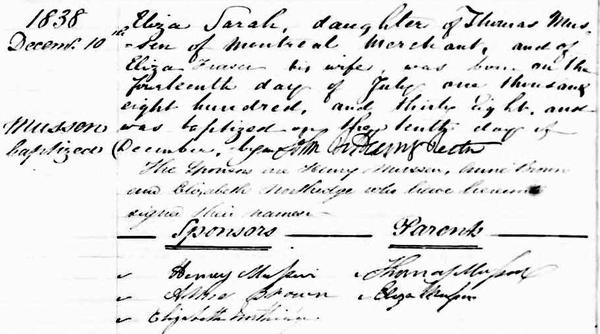 1838
Decemb. 10th
Musson
baptized
Eliza Sarah, daughter of Thomas Mus-
sen of Montreal Merchant, and of
Eliza Fraser his wife, was born on the
fourteenth day of July one thousand
eight hundred, and thirty Eight, and
was baptized on the tenth day of
December, by
The Sponsors are Henry Mussen, Anne Brown
and Elizabeth Northedge who have hereunto
signed their names
Sponsors Parents
Henry Mussen Thomas Mussen
Anne Brown Eliza Mussen
Elizabeth Northedge